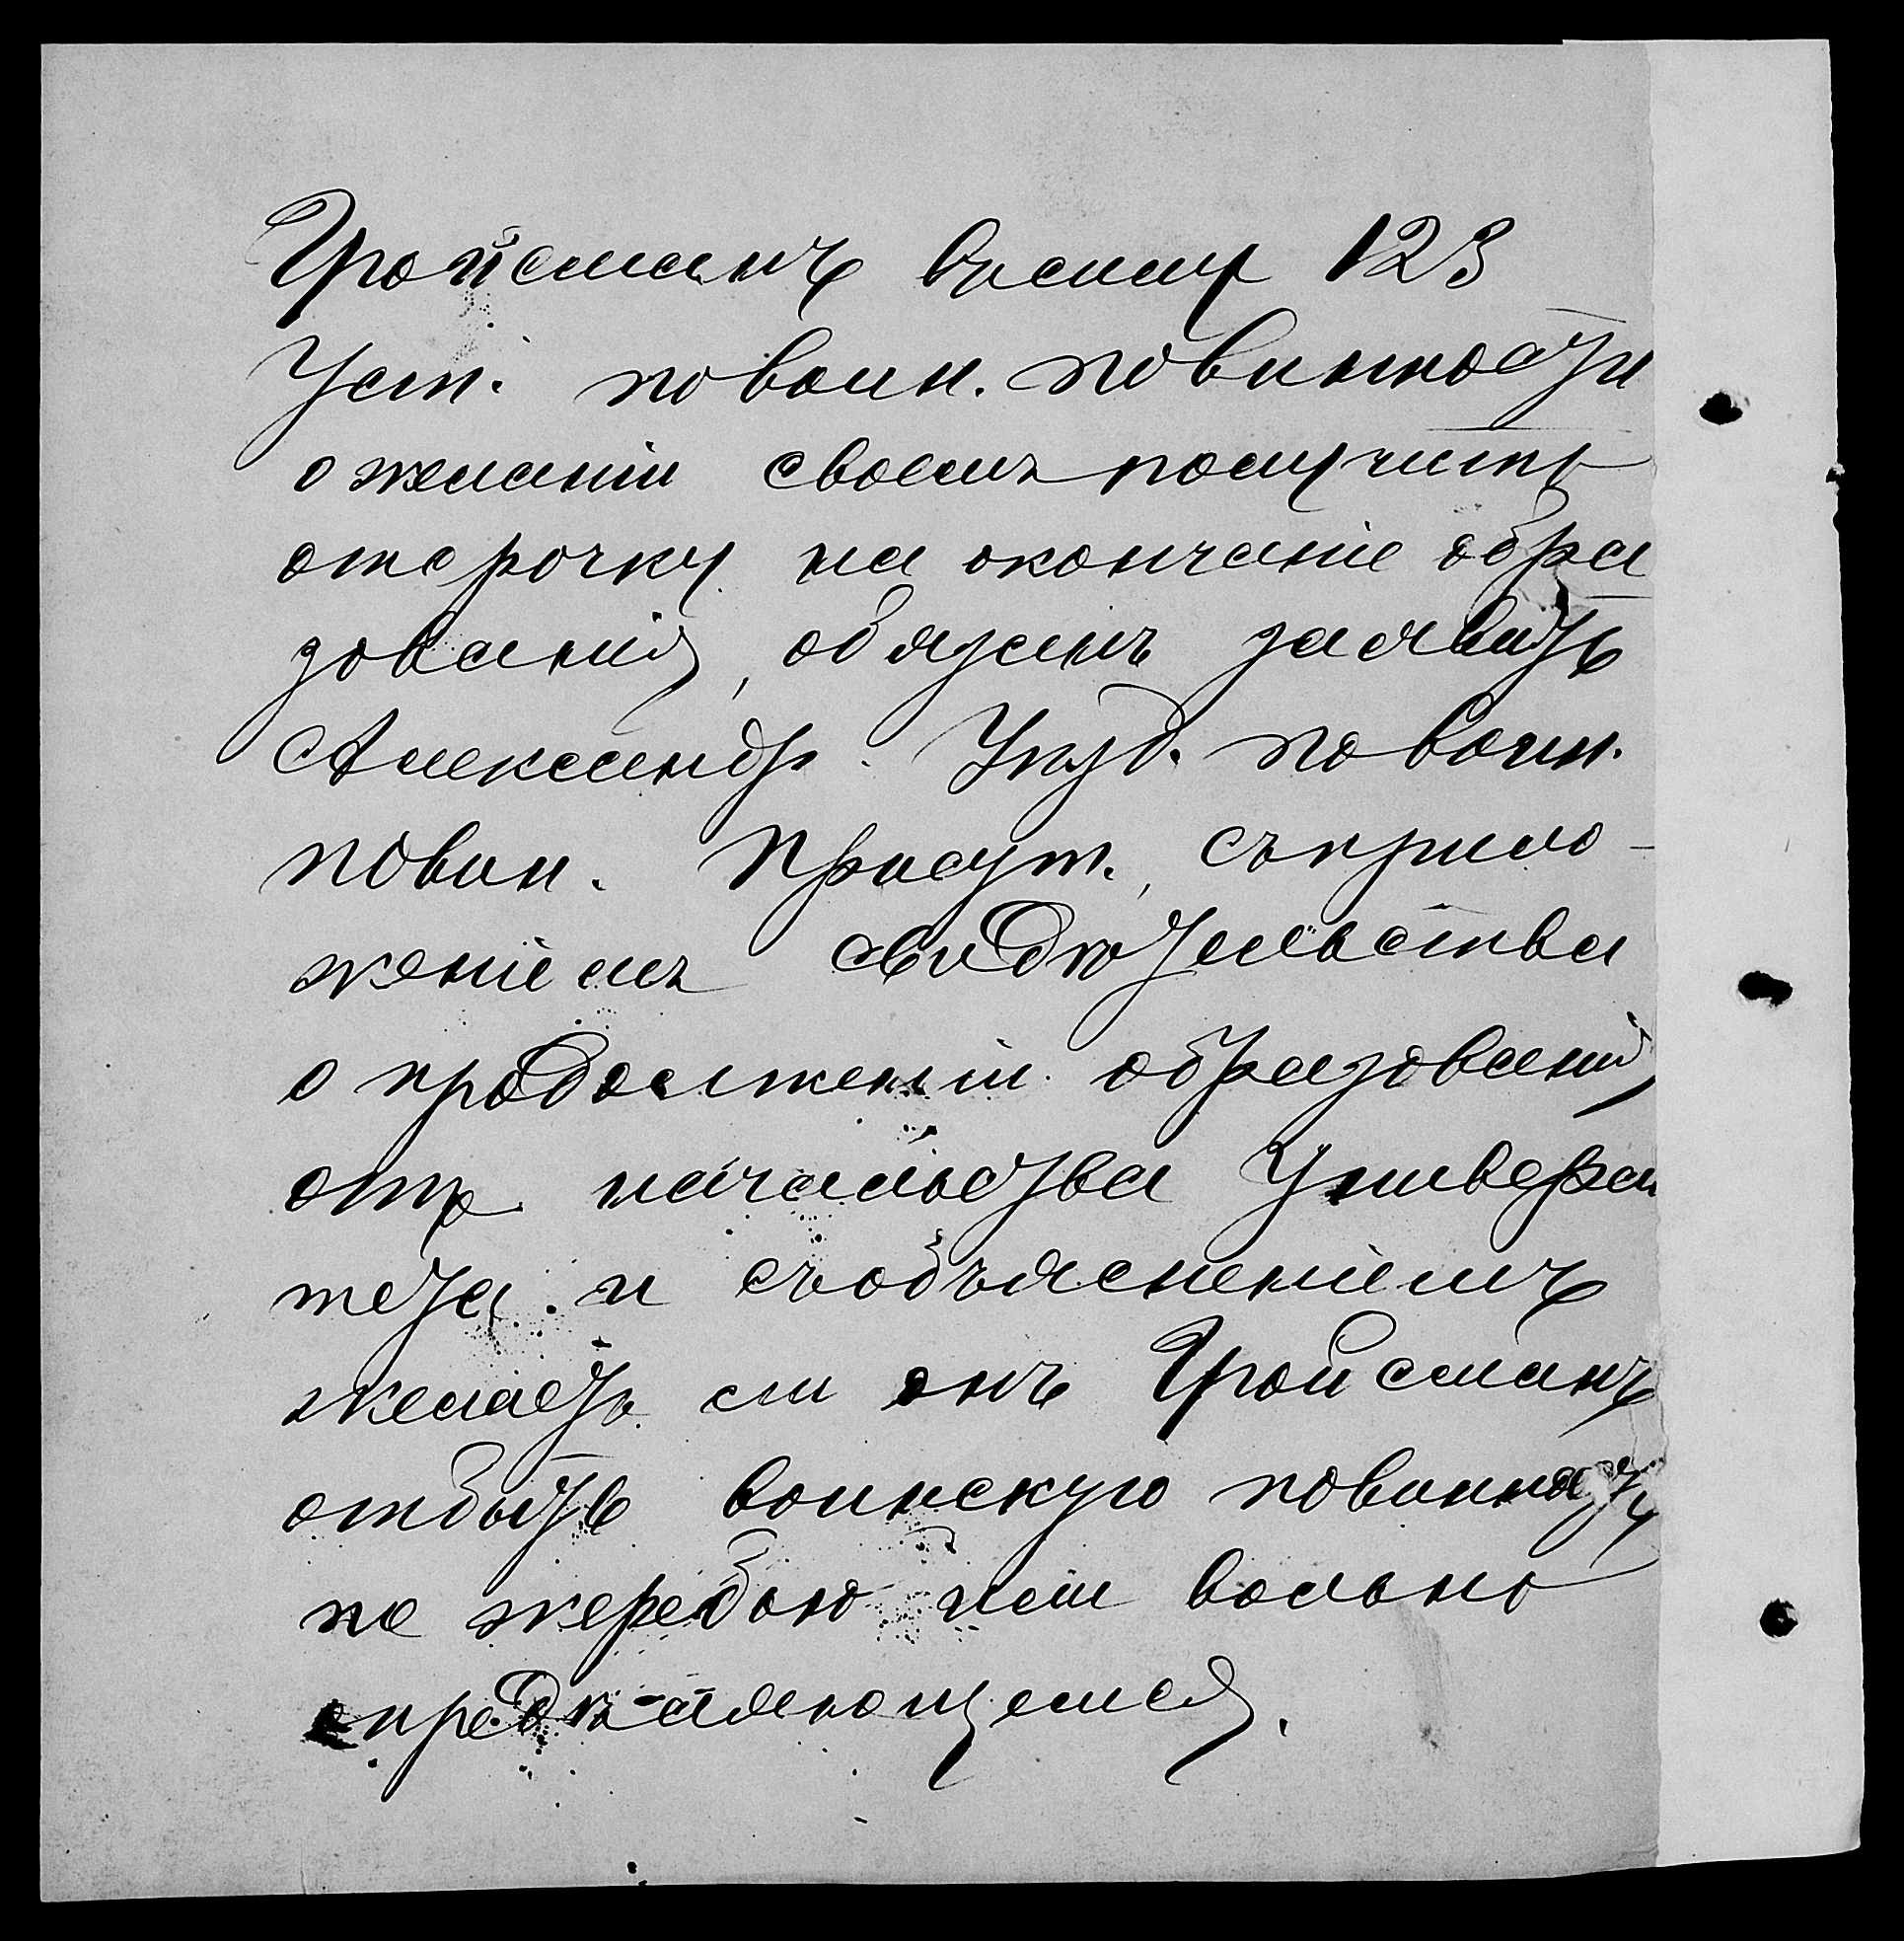 Гройсманъ въ силу 123
Уст. по воин. повинности
о желаніи своемъ получить
отсрочку на окончаніе обра
зованія, обязанъ заявить
Александр. Уѣзд. по воин.
повин. Присут., съ прило-
женіемъ свидѣтельства
о продолженіи образованія
отъ начальства Универси
тета и съ объясненіемъ
желаетъ ли онъ Гройсманъ
отбыть воинскую повинность
по жеребью или вольно
опредѣляющемся.